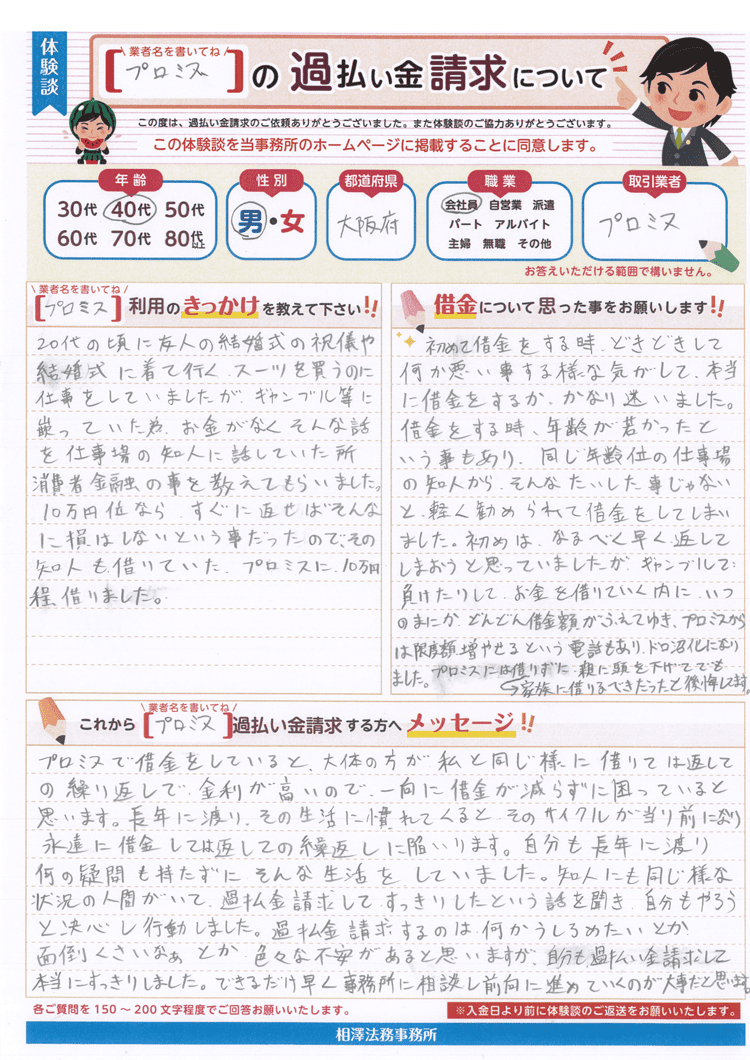 体験談
業者名を書いてね
[プロミス]の過払い金請求について
この度は、過払い金請求のご依頼ありがとうございました。また体験談のご協力ありがとうございます。
この体験談を当事務所のホームページに掲載することに同意します。
年齢
30代 40代 50代
60代 70代 80代以上
性別
男・女
都道府県
大阪府
職業
会社員 自営業 派遣
パート アルバイト
主婦 無職 その他
取引業者
プロミス
お答えいただける範囲で構いません。
業者名を書いてね
[プロミス]利用のきっかけを教えて下さい!!
20代の頃に友人の結婚式の祝儀や
結婚式に着て行く、スーツを買うのに
仕事をしていましたが、ギャンブル等に
嵌っていた為、お金がなくそんな話
を仕事場の知人に話していた所
消費者金融の事を教えてもらいました。
10万円位なら、すぐに返せばそんな
に損はしないという事だったので、その
知人も借りていた、プロミスに、10万円
程、借りました。
借金について思った事をお願いします!!
初めて借金をする時、どきどきして
何か悪い事する様な気がして、本当
に借金をするか、かなり迷いました。
借金をする時、年齢が若かったと
いう事もあり、同じ年齢位の仕事場
の知人から、そんなたいした事じゃない
と、軽く勧められて借金をしてしまい
ました。初めは、なるべく早く返して
しまおうと思っていましたが、ギャンブルで
負けたりして、お金を借りていく内に、いつ
のまにか、どんどん借金額がふえてゆき、プロミスから
は限度額増やせるという電話もあり、ドロ沼化になり
ました。プロミスには借りずに、親に頭を下げてでも
→家族に借りるべきだったと後悔します。
業者名を書いてね
これから[プロミス]過払い金請求する方へメッセージ!!
プロミスで借金をしていると、大体の方が私と同じ様に借りては返して
の繰り返しで、金利が高いので、一向に借金が減らずに困っていると
思います。長年に渡り、その生活に慣れてくると、そのサイクルが当り前になり
永遠に借金しては返しての繰返しに陥いります。自分も長年に渡り
何の疑問も持たずにそんな生活をしていました。知人にも同じ様な
状況の人間がいて、過払金請求して、すっきりしたという話を聞き、自分もやろう
と決心し行動しました。過払金請求するのは、何かうしろめたいとか
面倒くさいなぁとか、色々な不安があると思いますが、自分も過払い金請求して
本当にすっきりしました。できるだけ早く事務所に相談し前向に進めていくのが大事だと思います。
各ご質問を150～200文字程度でご回答お願いいたします。
※入金日より前に体験談のご返送をお願いいたします。
相澤法務事務所